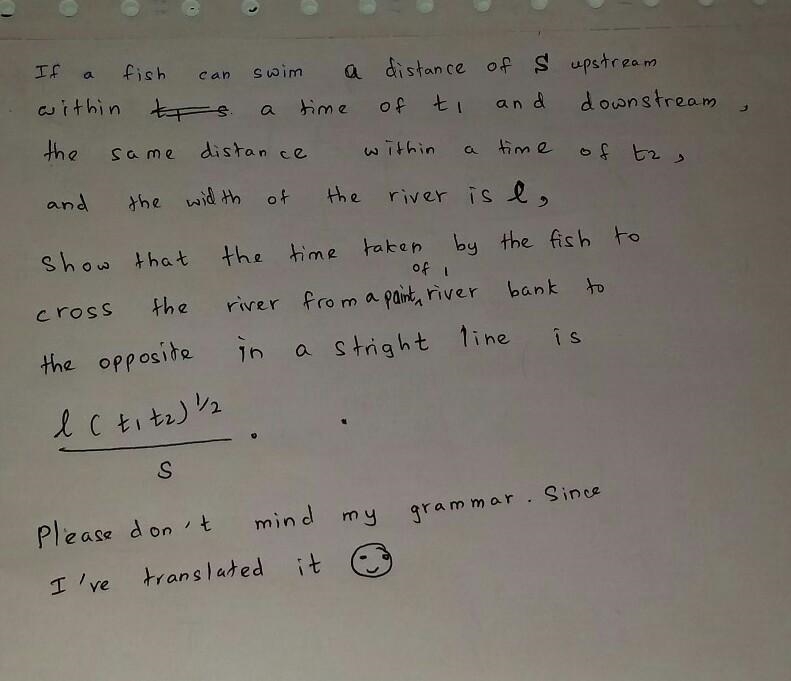 If a fish can swim a distance of S upstream
within t1 s a time of t1 and downstream,
the same distance within a time of t2,
and the width of the river is l,
Show that the time taken by the fish to
of 1
cross the river from a paint, river bank to
the opposite in a stright line is
l (t1t2)^1/2
S
Please don't mind my grammar. Since
I've translated it